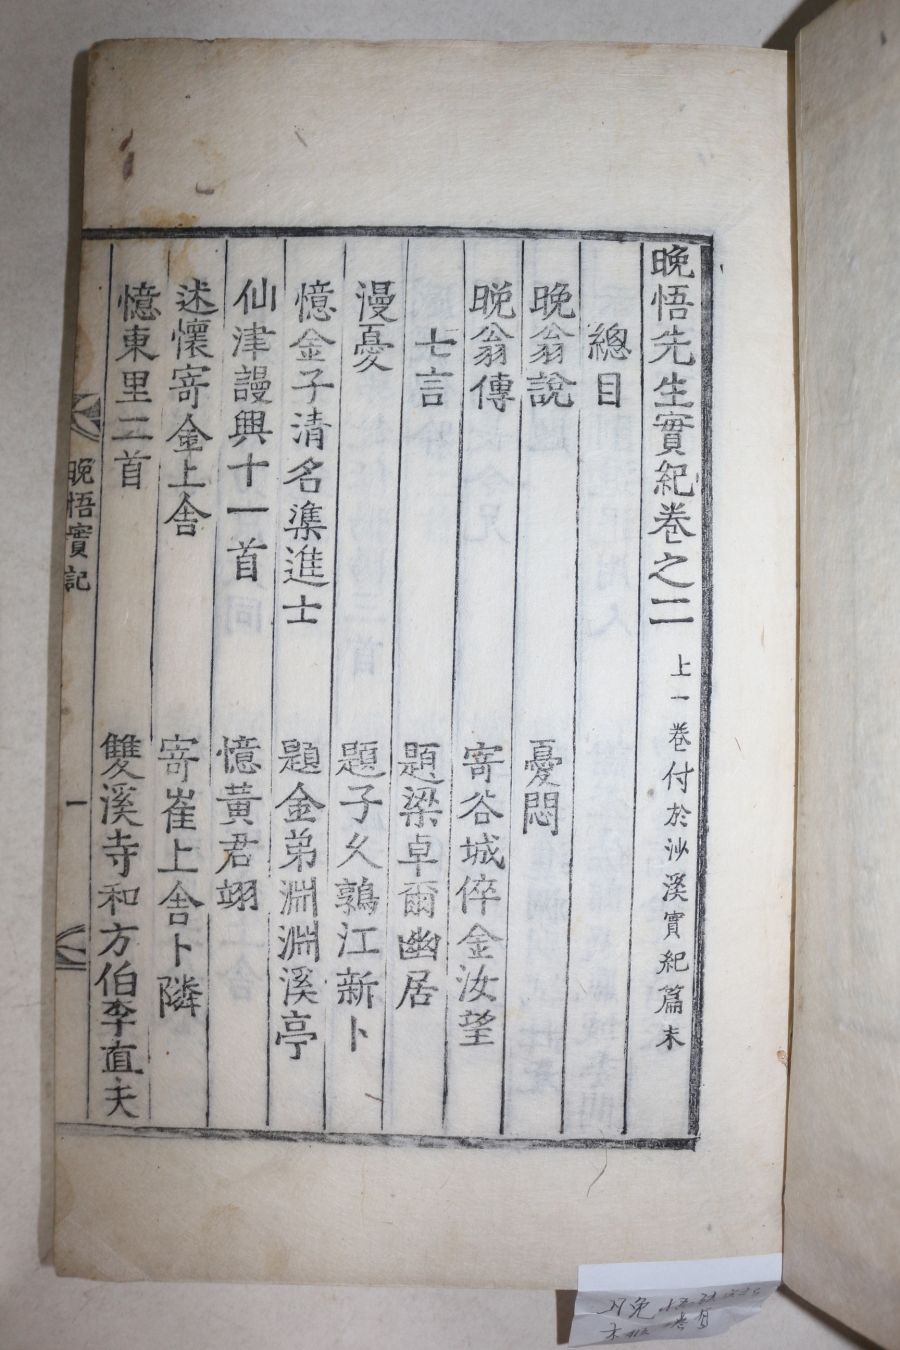 晩悟先生實紀卷之二 上一卷付於沙溪實紀篇末
總目
晩翁說 憂悶
晩翁傳 寄谷城倅金汝望
七言 題梁卓爾幽居
漫憂 題子久鶉江新卜
憶金子清名㵕進士 題金弟淵淵溪亭
仙津謾興十一首 憶黃君翊
述懷寄金上舍 寄崔上舍卜隣
憶東里二首 雙溪寺和方伯李直夫
晩悟實記 一